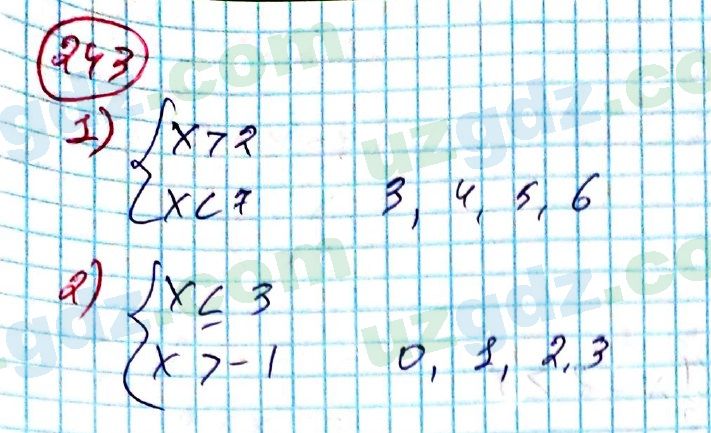 243
1) { x > 2
x < 7 3, 4, 5, 6
2) { x ≤ 3
x > -1 0, 1, 2, 3
uzgdz.com
uzgdz.com
uzgdz.com
uzgdz.com